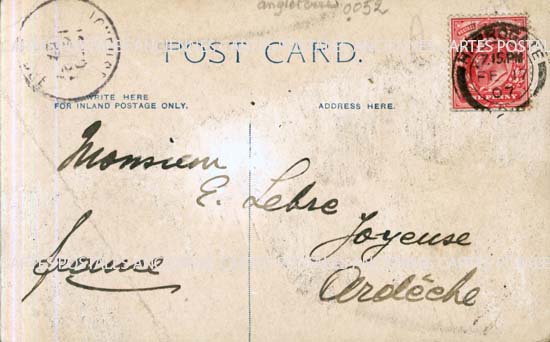 angleterre 0052
POST CARD.
WRITE HERE
FOR INLAND POSTAGE ONLY.
ADDRESS HERE.
HARROGATE
7.15 PM
FE
07
PENNY
JOYEUSE
Monsieur
E. Lebre
Joyeuse
Ardèche
France
CARTES POSTALE